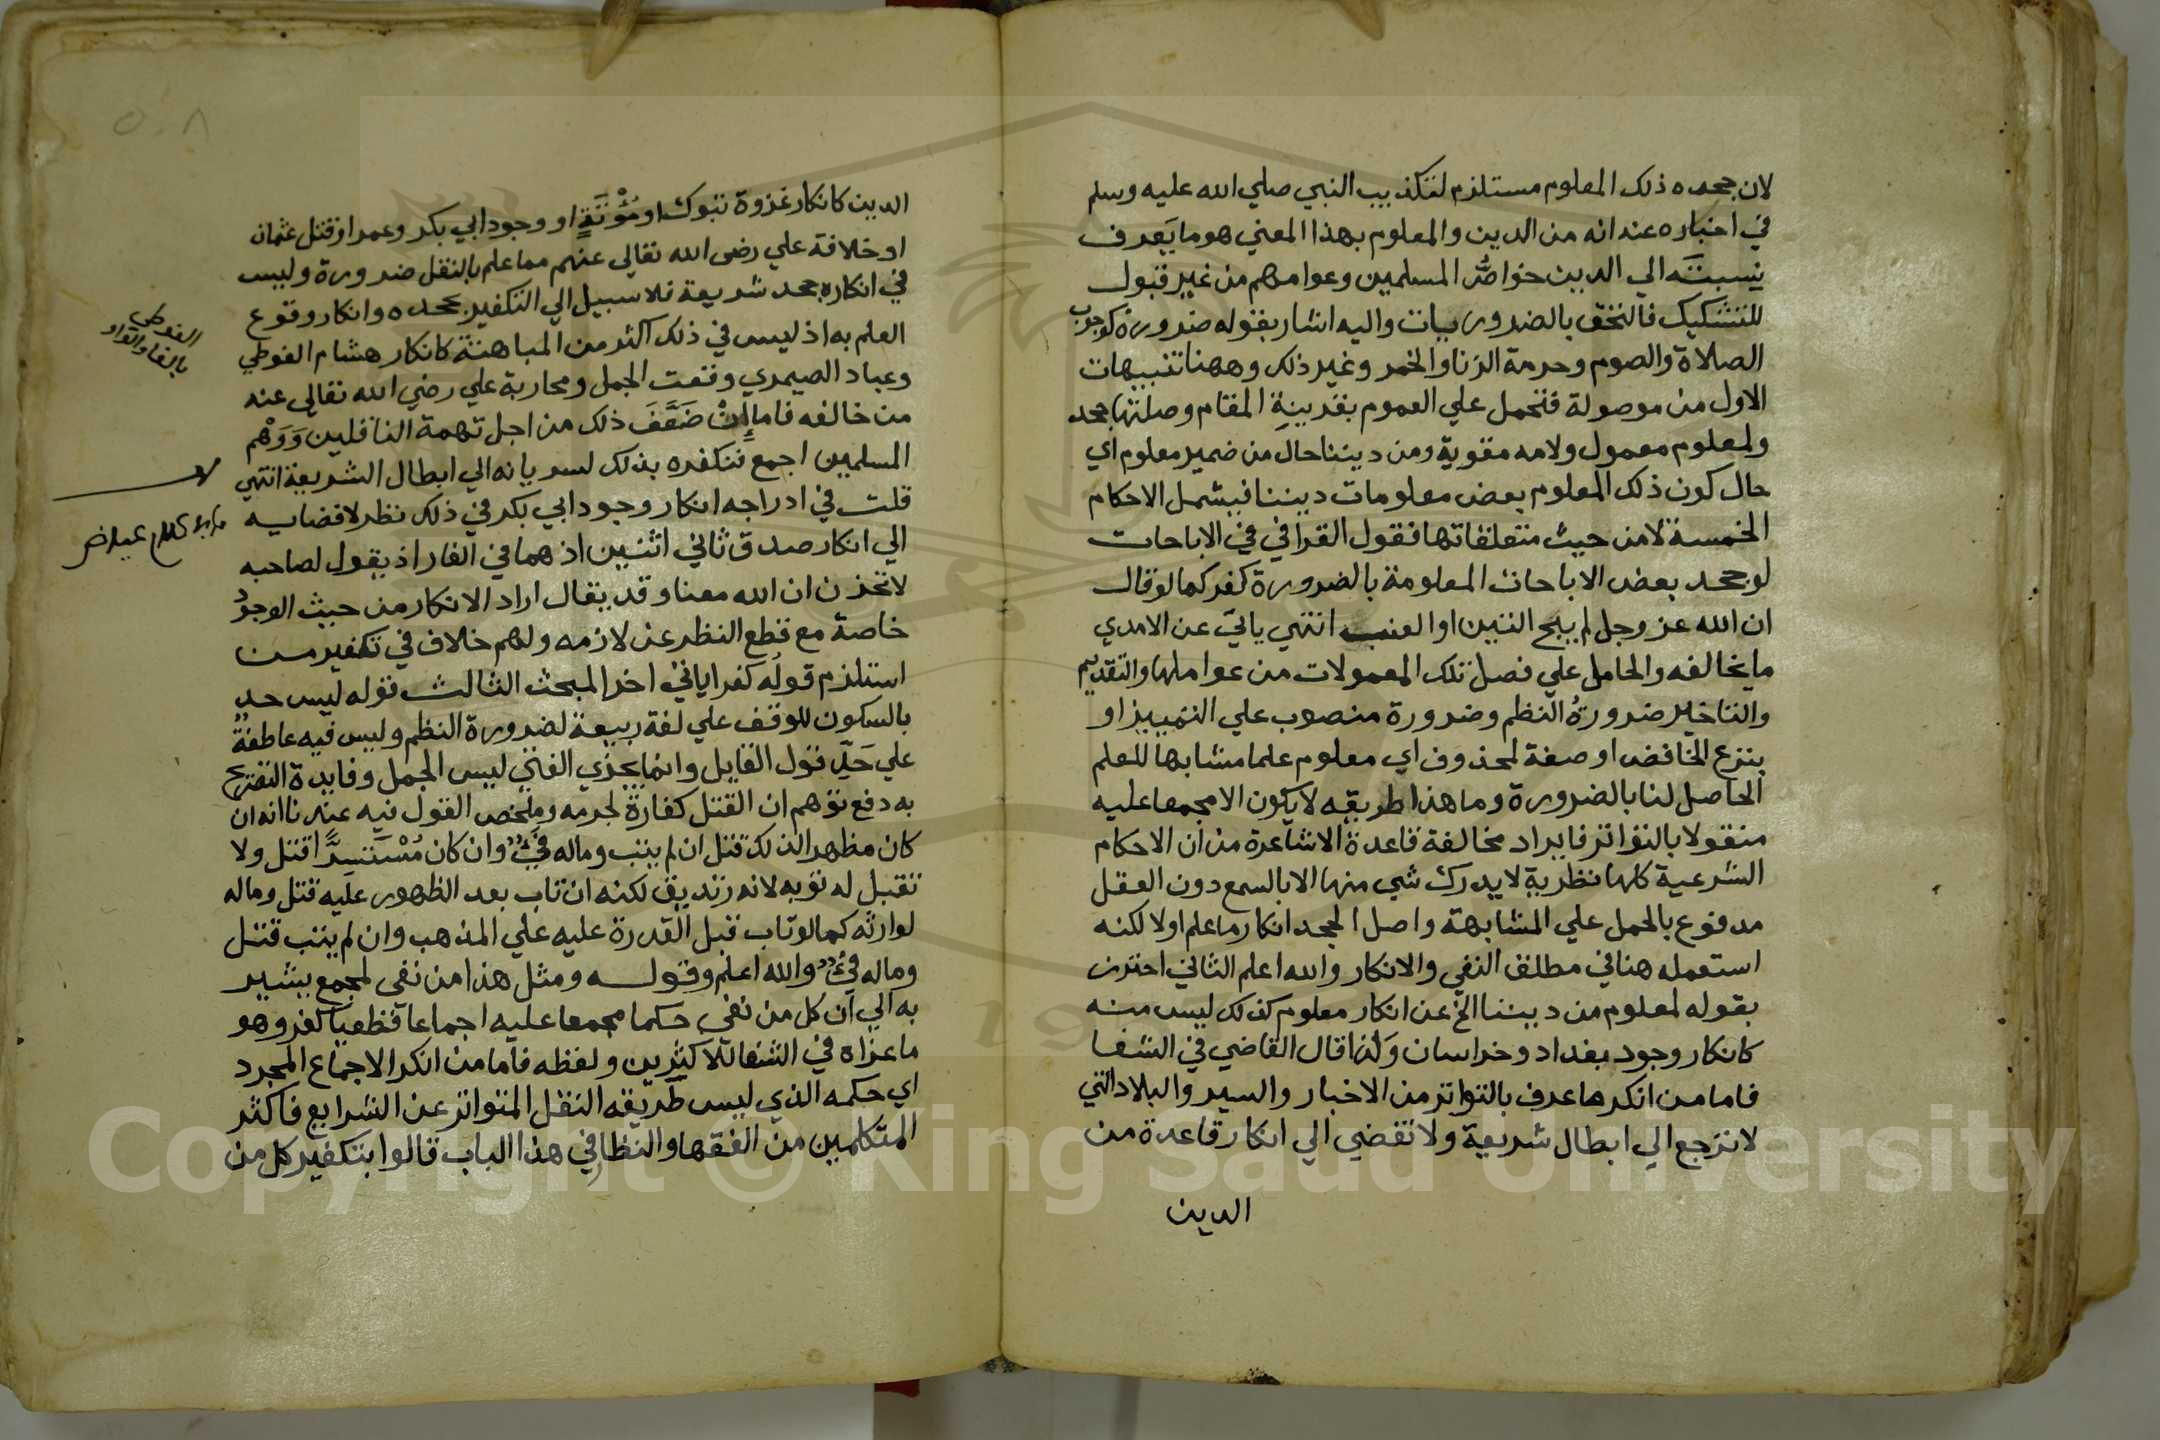 لان جحده ذلك المعلوم مستلزم لتكذيب النبي صلي الله عليه وسلم
في اخباره عنه انه من الدين والمعلوم بهذا المعني هو ما يعرف
نسبته الي الدين خواص المسلمين وعوامهم من غير قبول
للتشكيك فالتحق بالضروريات واليه اشار بقوله ضرورة كوجوب
الصلاة والصوم وحرمة الزنا والخمر وغير ذلك وههنا تنبيهات
الاول من موصولة فتحمل علي العموم بقرينة المقام وصلتها جحد
ولمعلوم معمول ولامه مقوية ومن ديننا حال من ضمير معلوم اي
حال كون ذلك المعلوم بعض معلومات ديننا فيشمل الاحكام
الخمسة لا من حيث متعلقاتها فقول القرافي في الاباحات
لو جحد بعض الاباحات المعلومة بالضرورة كفر كما لو قال
ان الله عز وجل لم يبح التين او العنب انتهي ياتي عن الامدي
ما يخالفه والحامل علي فصل تلك المعمولات من عواملها والتقديم
والتاخير ضرورة النظم وضرورة منصوب علي التمييز او
بنزع الخافض او صفة لمحذوف اي معلوم علما مشابها للعلم
الحاصل لنا بالضرورة وما هذا طريقه لا يكون الا مجمعا عليه
منقولا بالتواتر فايراد مخالفة قاعدة الاشاعرة من ان الاحكام
الشرعية كلها نظرية لا يدرك شي منها الا بالسمع دون العقل
مدفوع بالحمل علي المشابهة واصل الجحد انكار ما علم اولا لكنه
استعمله هنا في مطلق النفي والانكار والله اعلم الثاني احترز
بقوله لمعلوم من ديننا الخ عن انكار معلوم كذلك ليس منه
كانكار وجود بغداد وخراسان ولذا قال القاضي في الشفا
فاما من انكر ما عرف بالتواتر من الاخبار والسير والبلاد التي
لا ترجع الي ابطال شريعة ولا تفضي الي انكار قاعدة من
الدين
الدين كانكار غزوة تبوك او مؤتة او وجود ابي بكر وعمر او قتل عثمان
او خلافة علي رضى الله تعالى عنهم مما علم بالنقل ضرورة وليس
في انكاره جحد شريعة فلا سبيل الي التكفير بجحده وانكار وقوع
العلم به اذ ليس في ذلك اكثر من المباهتة كانكار هشام الفوطي
وعباد الصيمري وقعت الجمل ومحاربة علي رضي الله تعالى عنه
من خالفه فاما ان ضعف ذلك من اجل تهمة الناقلين ووهم
المسلمين اجمع فتكفره بذلك لسريانه الي ابطال الشريعة انتهي
قلت في ادراجه انكار وجود ابي بكر في ذلك نظر لافضايه
الي انكار صدق ثاني اثنين اذ هما في الغار اذ يقول لصاحبه
لا تحزن ان الله معنا وقد يقال اراد الانكار من حيث الوجود
خاصة مع قطع النظر عن لازمه ولهم خلاف في تكفير من
استلزم قوله كفرا ياتي اخر المبحث الثالث قوله ليس حد
بالسكون للوقف علي لغة ربيعة لضرورة النظم وليس فيه عاطفة
علي حد قول القايل وانما يجزي الفتي ليس الجمل وفايدة التصريح
به دفع توهم ان القتل كفارة لجرمه وملخص القول فيه عندنا انه ان
كان مظهرا لذلك قتل ان لم يتب وماله فيء وان كان مستسرا قتل ولا
تقبل له توبه لانه زنديق لكنه ان تاب بعد الظهور عليه قتل وماله
لوارثه كما لو تاب قبل القدرة عليه علي المذهب وان لم يتب قتل
وماله فيء والله اعلم وقوله ومثل هذا من نفي لمجمع يشير
به الي ان كل من نفي حكما مجمعا عليه اجماعا قطعيا كفر وهو
ما عزاه في الشفا للاكثرين ولفظه فاما من انكر الاجماع المجرد
اي حكمه الذي ليس طريقه النقل المتواتر عن الشرايع فاكثر
المتكلمين من الفقها والنظار في هذا الباب قالوا بتكفير كل من
الفوطي
بالفا والواو
كلام عياض
٥٠٨
Copyright © King Saud University